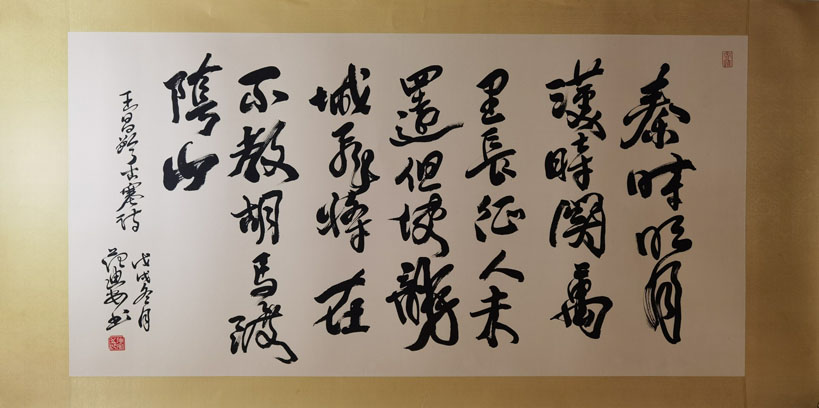 秦時明月
漢時關萬
里長征人未
還但使龍
城飛將在
不教胡馬渡
陰山
王昌齡出塞詩
戊戌冬月
范迪安書